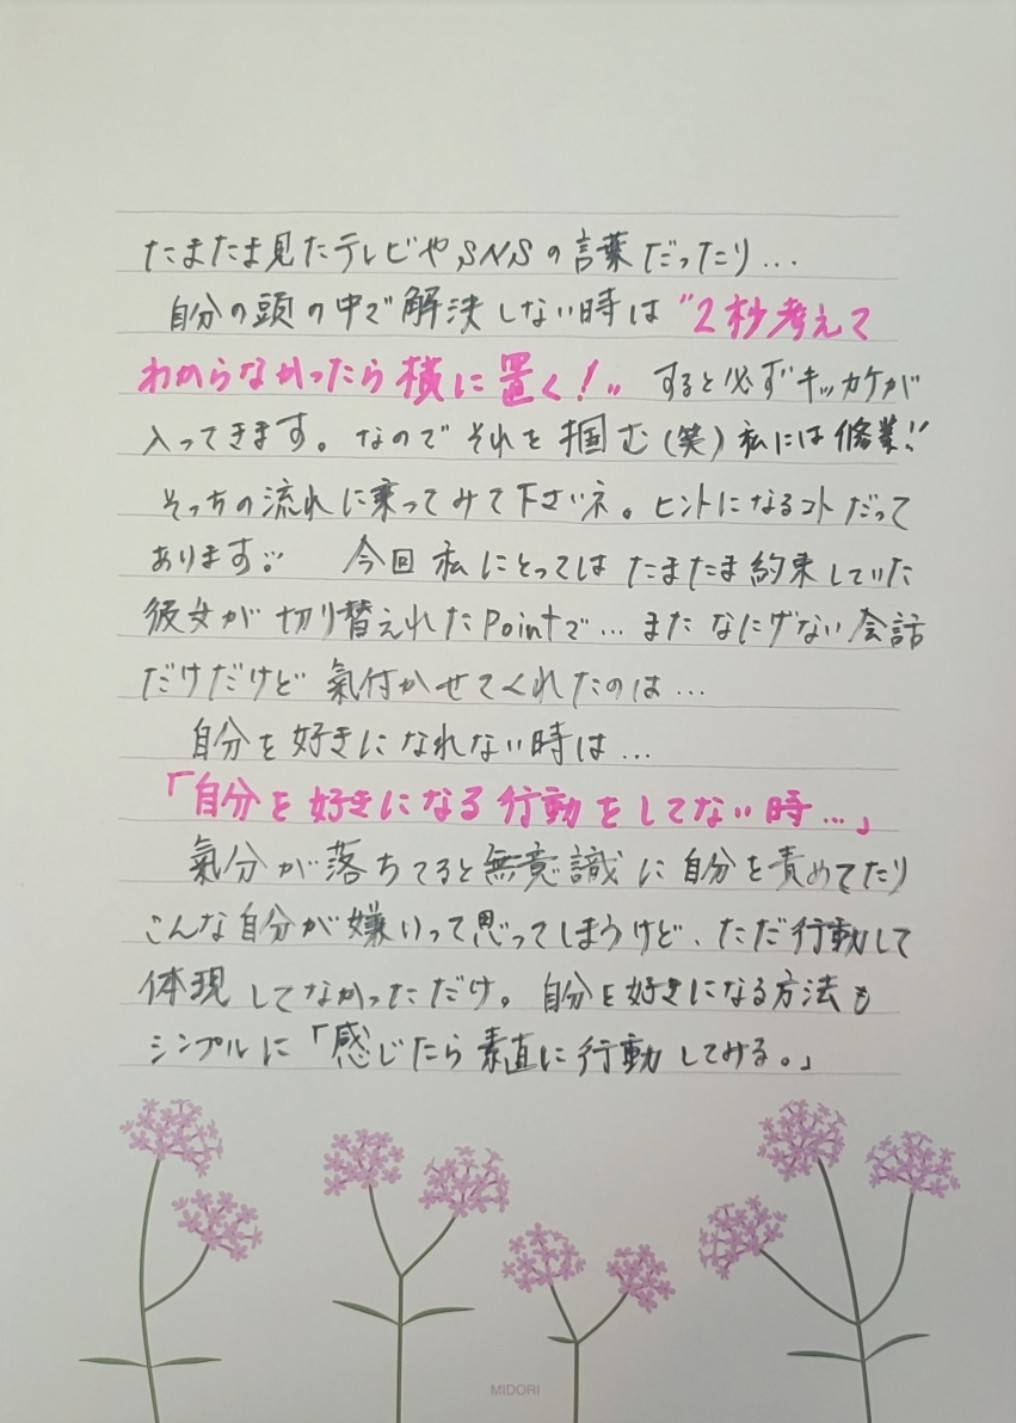 たまたま見たテレビやSNSの言葉だったり...
自分の頭の中で解決しない時は"2秒考えて
わからなかったら横に置く!"すると必ずキッカケが
入ってきます。なのでそれを掴む(笑)私には修業!!
そっちの流れに乗ってみて下さいネ。ヒントになるコトだって
あります!! 今回私にとってはたまたま約束していた
彼女が切り替えれたPointで...またなにげない会話
だけだけど氣付かせてくれたのは...
自分を好きになれない時は...
「自分を好きになる行動をしてない時...」
氣分が落ちてると無意識に自分を責めてたり
こんな自分が嫌いって思ってしまうけど、ただ行動して
体現してなかっただけ。自分を好きになる方法も
シンプルに「感じたら素直に行動してみる。」
MIDORI